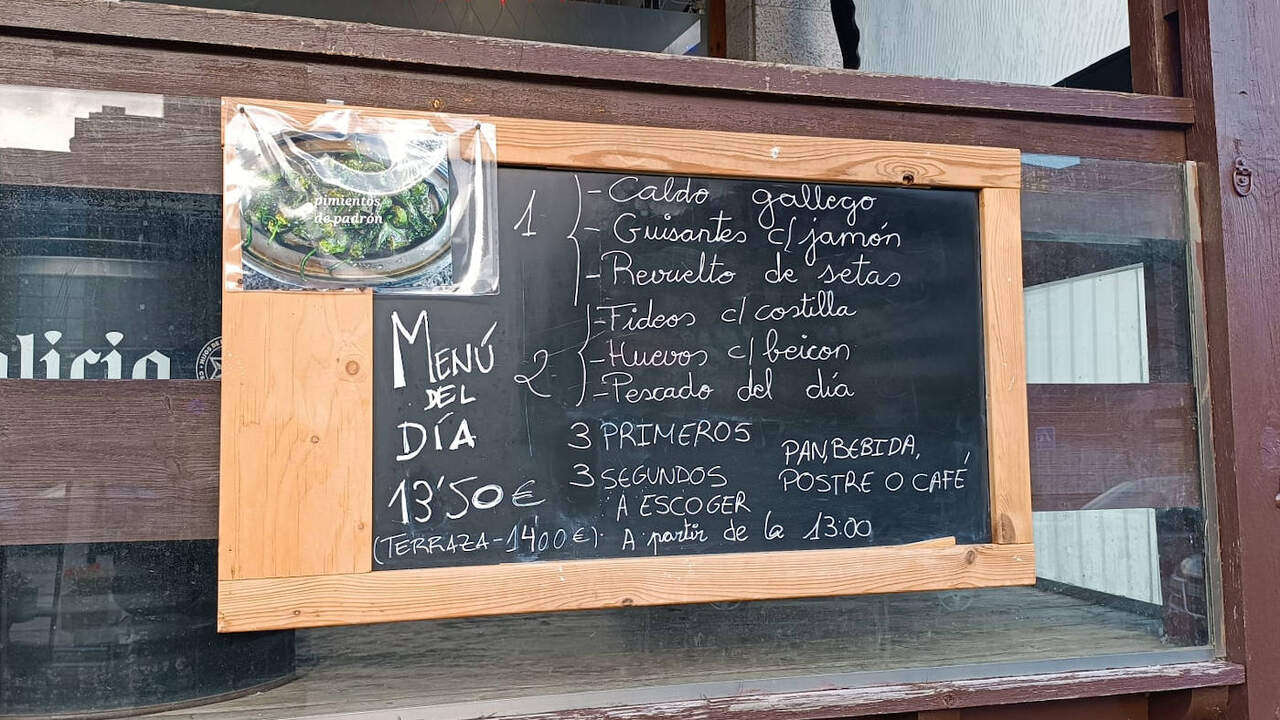 pimientos
de padrón
1 - Caldo gallego
- Guisantes c/ jamón
- Revuelto de setas
2 - Fideos c/ costilla
- Huevos c/ beicon
- Pescado del día
MENÚ
DEL
DÍA
13'50 €
(TERRAZA - 14'00 €).
3 PRIMEROS
3 SEGUNDOS
A ESCOGER
PAN, BEBIDA,
POSTRE O CAFÉ
A partir de la 13:00
alicia